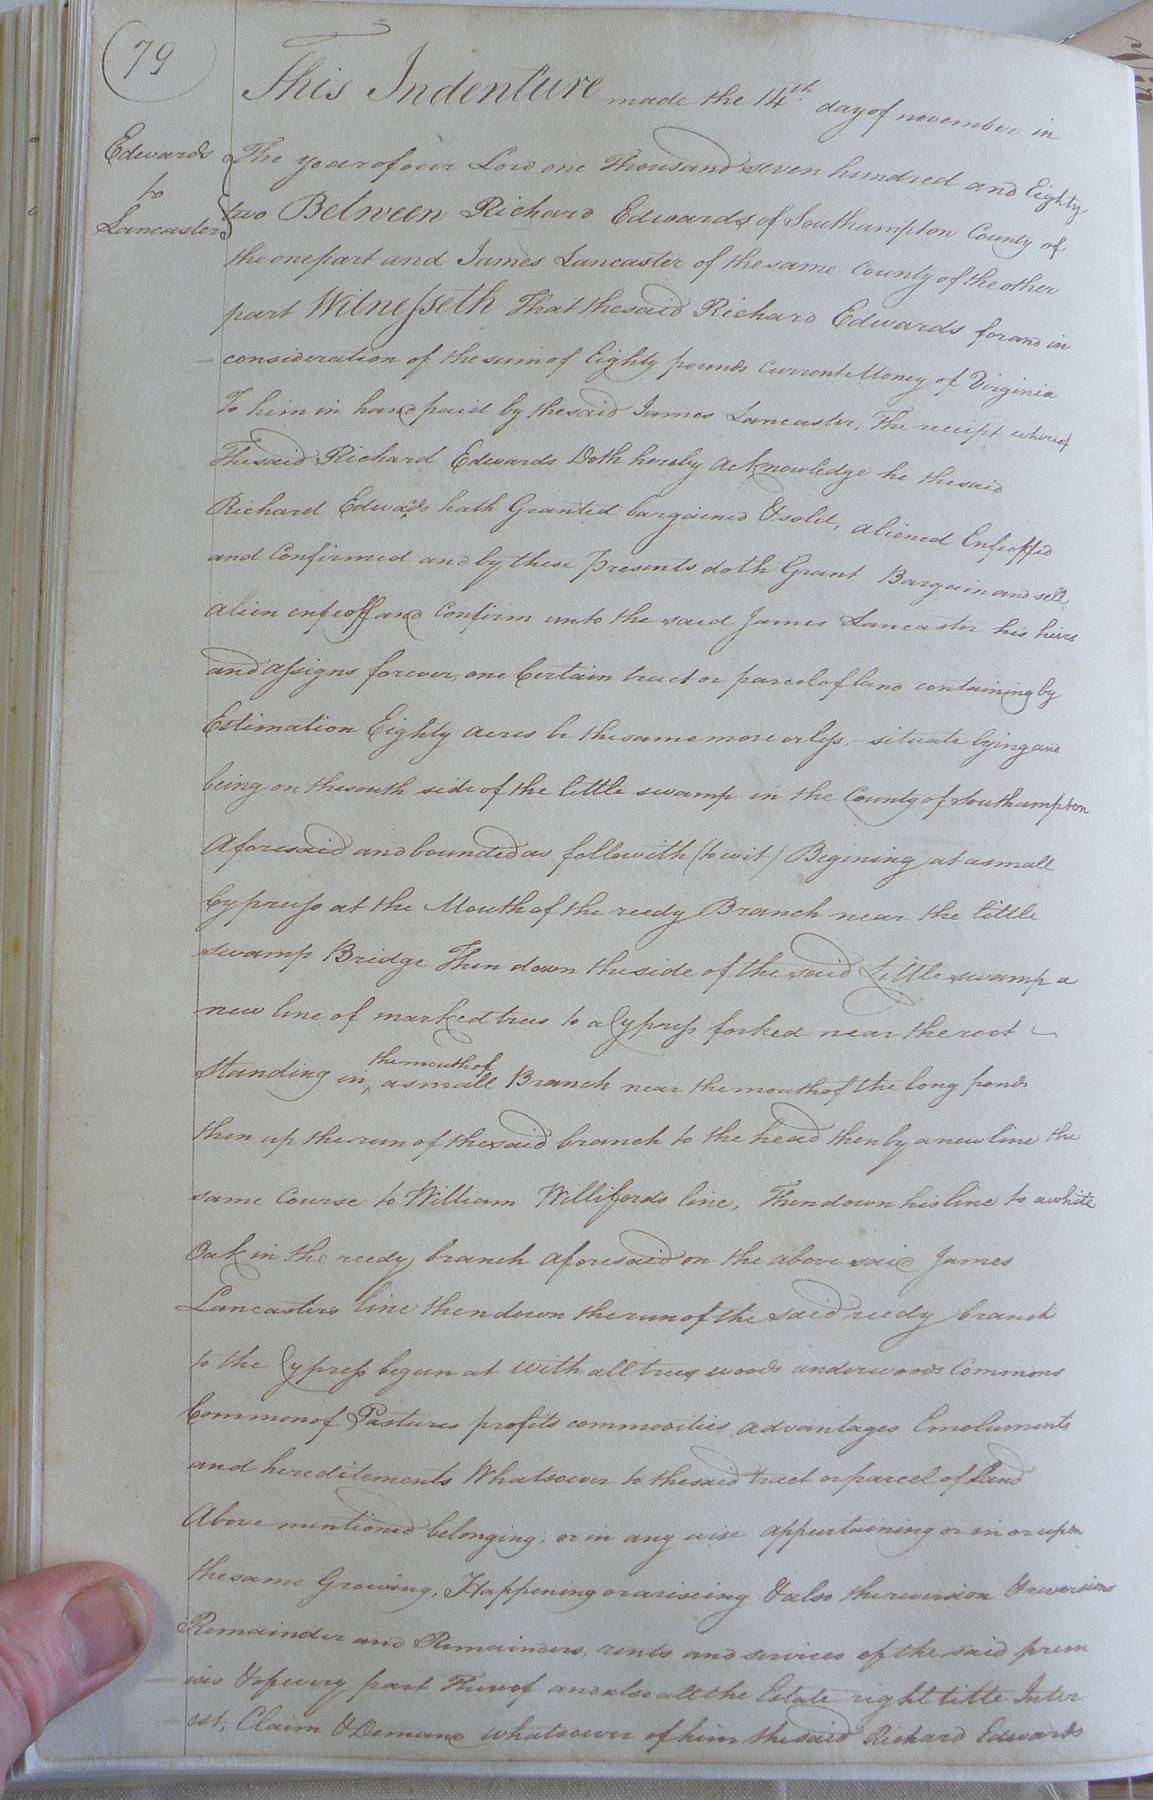 79
This Indenture made the 14th day of november in
Edwards
to
Lancaster
The year of our Lord one Thousand seven hundred and Eighty
two Between Richard Edwards of Southampton County of
the one part and James Lancaster of the same County of the other
part Witnesseth That the said Richard Edwards for and in
consideration of the sum of Eighty pounds Current Money of Virginia
To him in hand paid by the said James Lancaster, The receipt whereof
The said Richard Edwards Doth hereby acknowledge he the said
Richard Edwards hath Granted bargained & sold, aliened Enfeoffed
and Confirmed and by these Presents doth Grant Bargain and sell
alien enfeoff and Confirm unto the said James Lancaster his heirs
and assigns forever, one Certain tract or parcel of land containing by
Estimation Eighty acres be the same more or less, situate lying and
being on the south side of the little swamp in the County of Southampton
Aforesaid and bounded as followith (to wit) Begining at a small
Cypress at the Mouth of the reedy Branch near the little
swamp Bridge Then down the side of the said Little swamp a
new line of marked trees to a Cypress forked near the root
standing in the mouth of a small Branch near the mouth of the long pond
then up the run of the said branch to the head then by a new line the
same Course to William Willifords line, Then down his line to a white
Oak in the reedy branch aforesaid on the above said James
Lancasters line then down the run of the said reedy branch
to the Cypress begun at with all trees woods underwoods Commons
Common of Pastures profits commodities advantages Emoluments
and hereditements Whatsoever to the said tract or parcel of Land
Above mentioned belonging, or in any wise appurtaining or in or upon
the same Growing, Happening or ariseing & also the reversion & reversions
Remainder and Remainders, rents and services of the said prem
ises & of every part Thereof and also all the Estate right title Inter
est, Claim & Demand whatsoever of him the said Richard Edwards